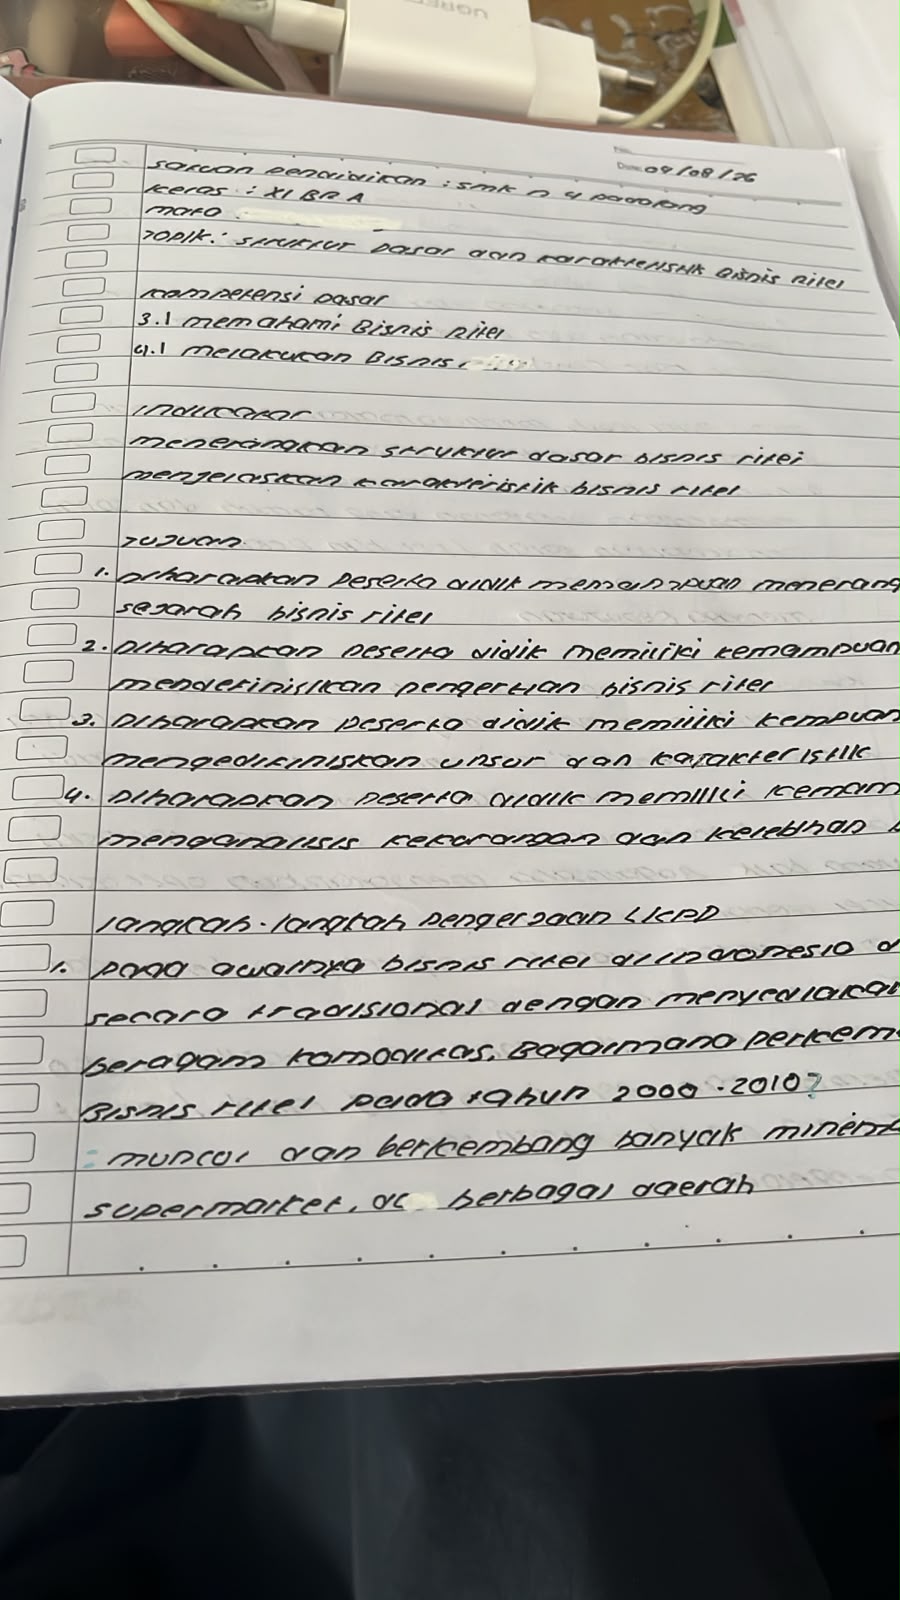 UGREEN
No.
Date: 04/08/26
Satuan Pendidikan : SMK N 4 Padalang
Kelas : XI BR A
Mata
Topik : Struktur Dasar dan Karakteristik Bisnis Ritel
Kompetensi Dasar
3.1 memahami Bisnis Ritel
4.1 melakukan Bisnis
Indikator
menerangkan struktur dasar bisnis ritel
menjelaskan karakteristik bisnis ritel
Tujuan
1. Diharapkan peserta didik menerang
sejarah bisnis ritel
2. Diharapkan peserta didik memiliki kemampuan
mendefinisikan pengertian bisnis ritel
3. Diharapkan peserta didik memiliki kempuan
mengedifiniskan unsur dan karakteristik
4. Diharapkan peserta didik memiliki kemam
menganalisis kekurangan dan kelebihan b
langkah-langkah pengerjaan LKPD
1. pada awalnya bisnis ritel di indonesia d
secara tradisional dengan menyediakan
beragam komoditas. Bagaimana perkem
Bisnis ritel pada tahun 2000-2010?
: muncul dan berkembang banyak minim
supermarket, berbagai daerah